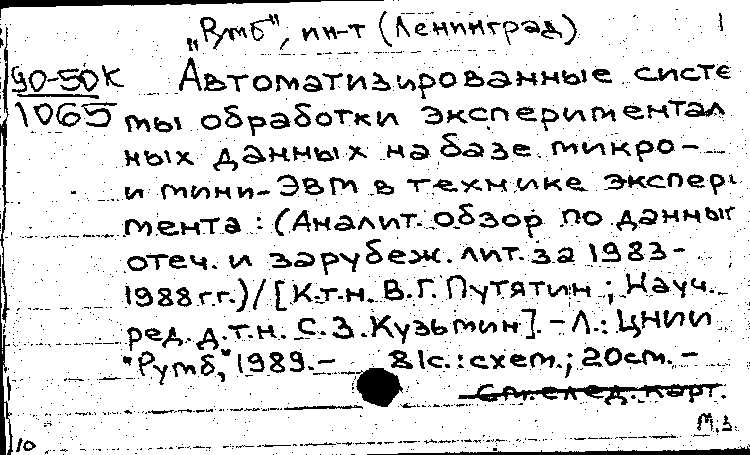 „Румб", ин-т (Ленинград) 1
90-50К
1065
Автоматизированные систе
мы обработки эксперименталь
ных данных на базе микро-
и мини-ЭВМ в технике экспери
мента: (Аналит. обзор по данным
отеч. и зарубеж. лит. за 1983-
1988 г.г.) / [К.т.н. В.Г. Путятин ; Науч.
ред. д.т.н. С.З. Кузьмин]. - Л.: ЦНИИ
"Румб," 1989. - 81с.: схем.; 20см. -
См. след. карт.
М.З.
10